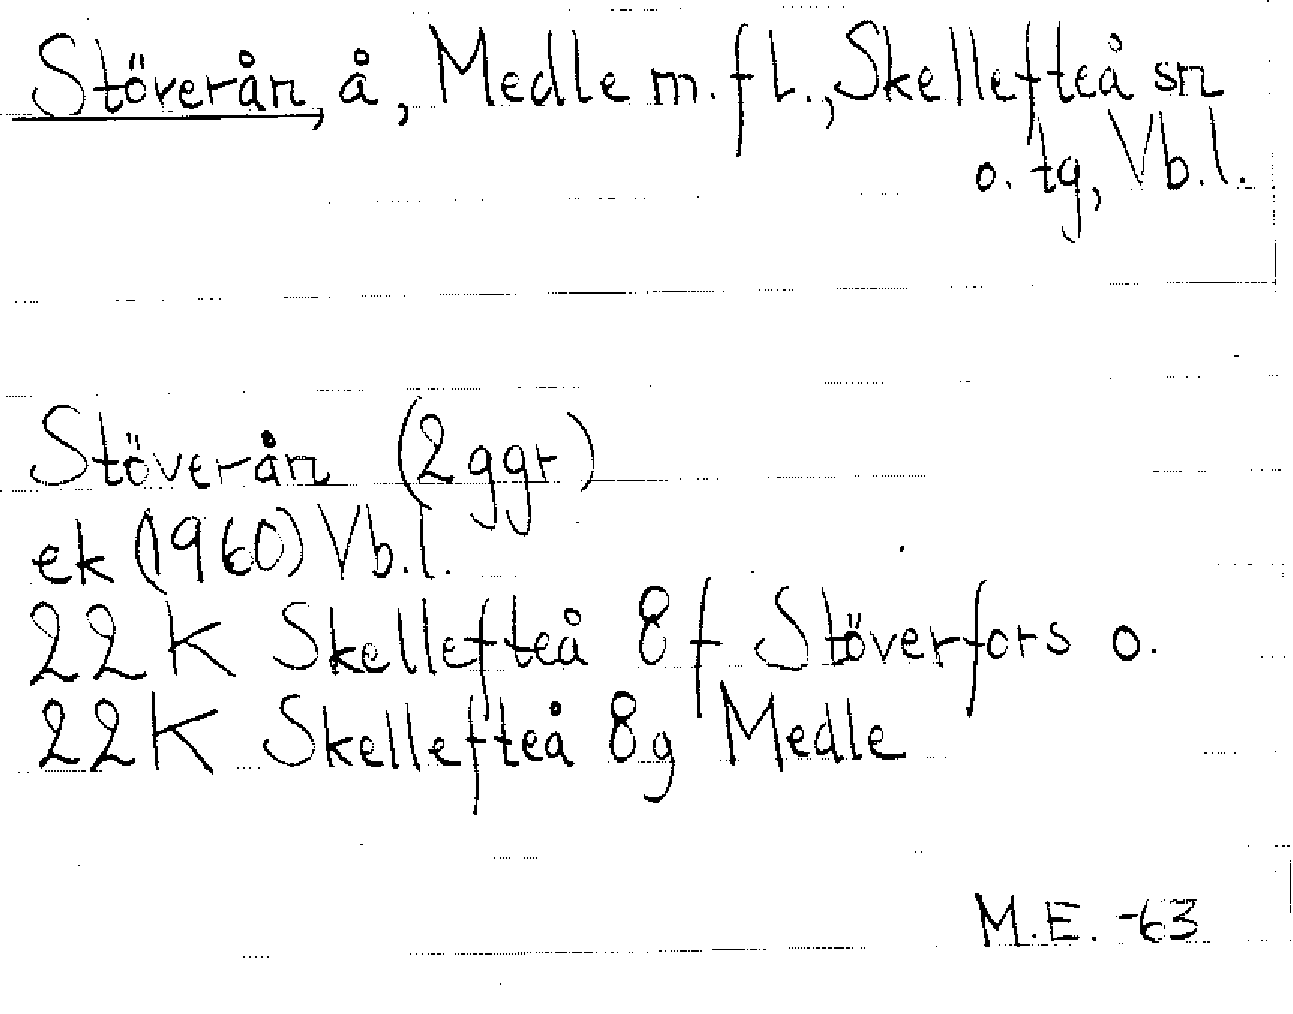 Stöverån, å, Medle m.fl., Skellefteå sn
o. tg, Vb.l.
Stöverån (2 ggr)
ek (1960) Vb.l.
22 K Skellefteå 8f Stöverfors o.
22K Skellefteå 8g Medle
M.E. -63